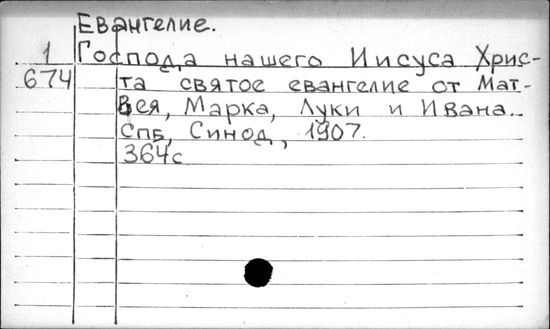 Евангелие.
1 Господа нашего Иисуса Хрис-
674 та святое евангелие от Мат-
вея, Марка, Луки и Ивана.
Спб, Синод, 1907.
364с